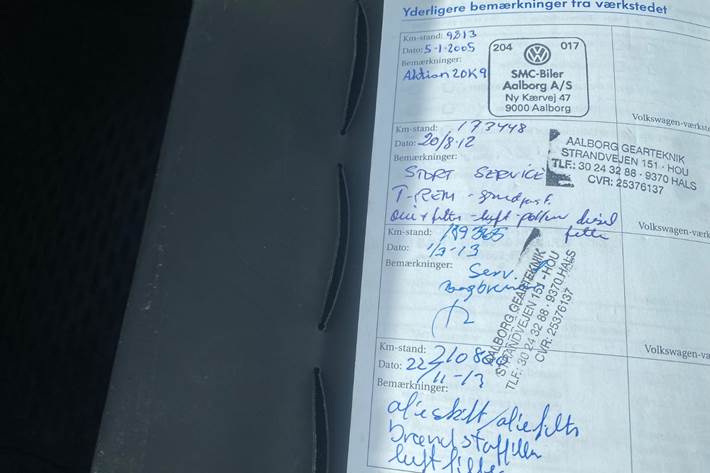 Yderligere bemærkninger fra værkstedet
Km-stand: 9813
Dato: 5-1-2005
Bemærkninger:
Aktion 20K9
204 017
SMC-Biler
Aalborg A/S
Ny Kærvej 47
9000 Aalborg
Volkswagen-værkste
Km-stand: 173448
Dato: 20/8-12
Bemærkninger:
STORT SERVICE
T-REM
olie + filter - luft - pollen diesel
filter
AALBORG GEARTEKNIK
STRANDVEJEN 151 - HOU
TLF.: 30 24 32 88 - 9370 HALS
CVR: 25376137
Volkswagen-værk
Km-stand:
Dato: 1/3-13
Bemærkninger:
Serv.
AALBORG GEARTEKNIK
STRANDVEJEN 151 - HOU
TLF.: 30 24 32 88 - 9370 HALS
CVR: 25376137
Volkswagen-væ
Km-stand:
Dato: 22/11-13
Bemærkninger:
olieskift/oliefilter
brændstoffilter
luftfilter